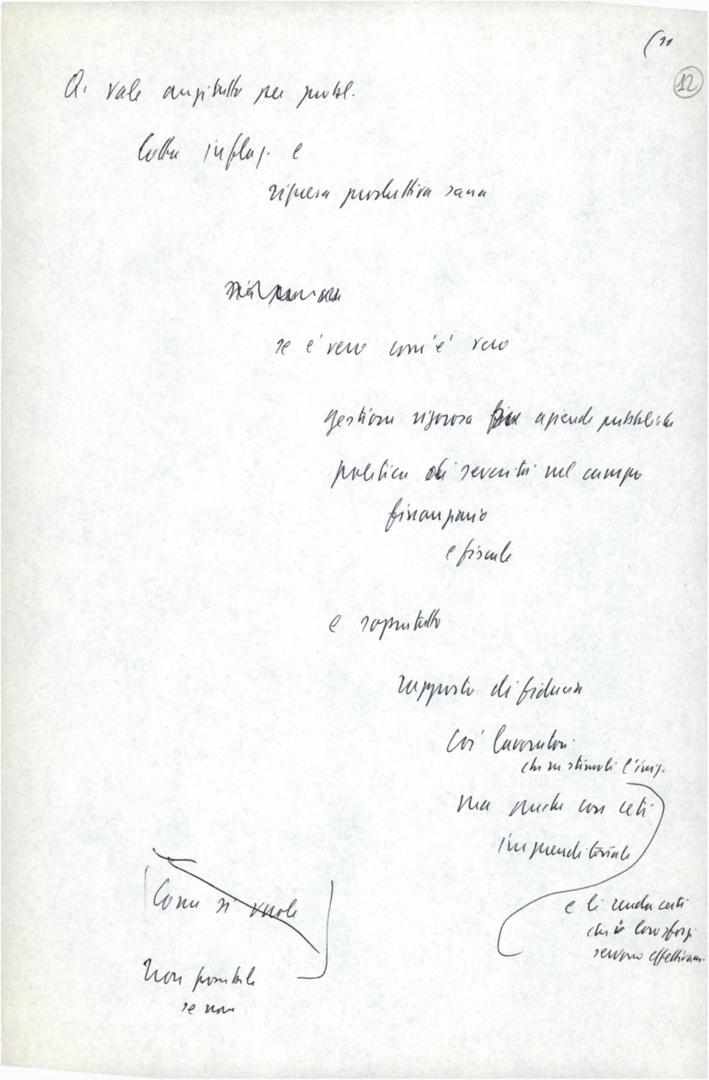 (11
12
Q. vale anzitutto per probl.
lotta inflaz. e
ripresa produttiva sana
se è vero com'è vero
gestione rigorosa aziende pubbliche
politica di severità nel campo
finanziario
e fiscale
e soprattutto
rapporto di fiducia
coi lavoratori
che ne stimoli l'imp.
ma anche con ceti
imprenditoriale
e li renda certi
che i loro sforzi
servono effettivam.
Come si vuole
Non possibile
se non